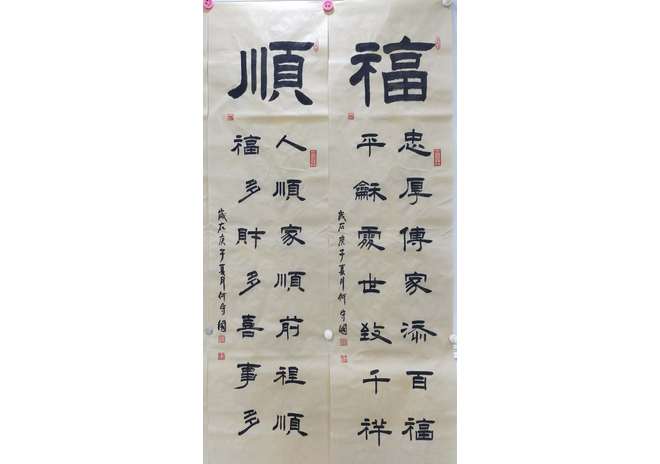 福
忠厚傳家添百福
平龢處世致千祥
歲在庚子夏月何守國
順
人順家順前程順
福多財多喜事多
歲在庚子夏月何守國